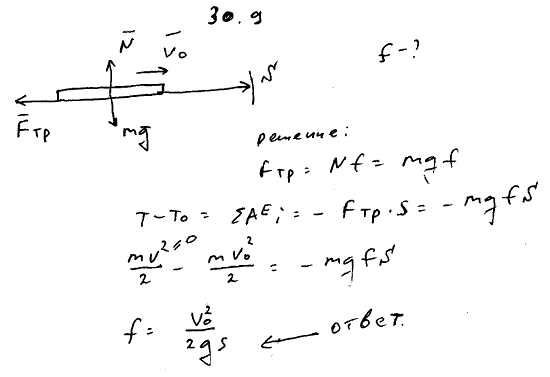 30.9
N̄ V̄₀
S
f - ?
F̄тр
mḡ
решение:
Fтр = Nf = mgf
T - T₀ = ΣAᴱᵢ = - Fтр · S = - mgfS
mv²⁼⁰/2 - mV₀²/2 = - mgfS
f = V₀²/2gs ← ответ.